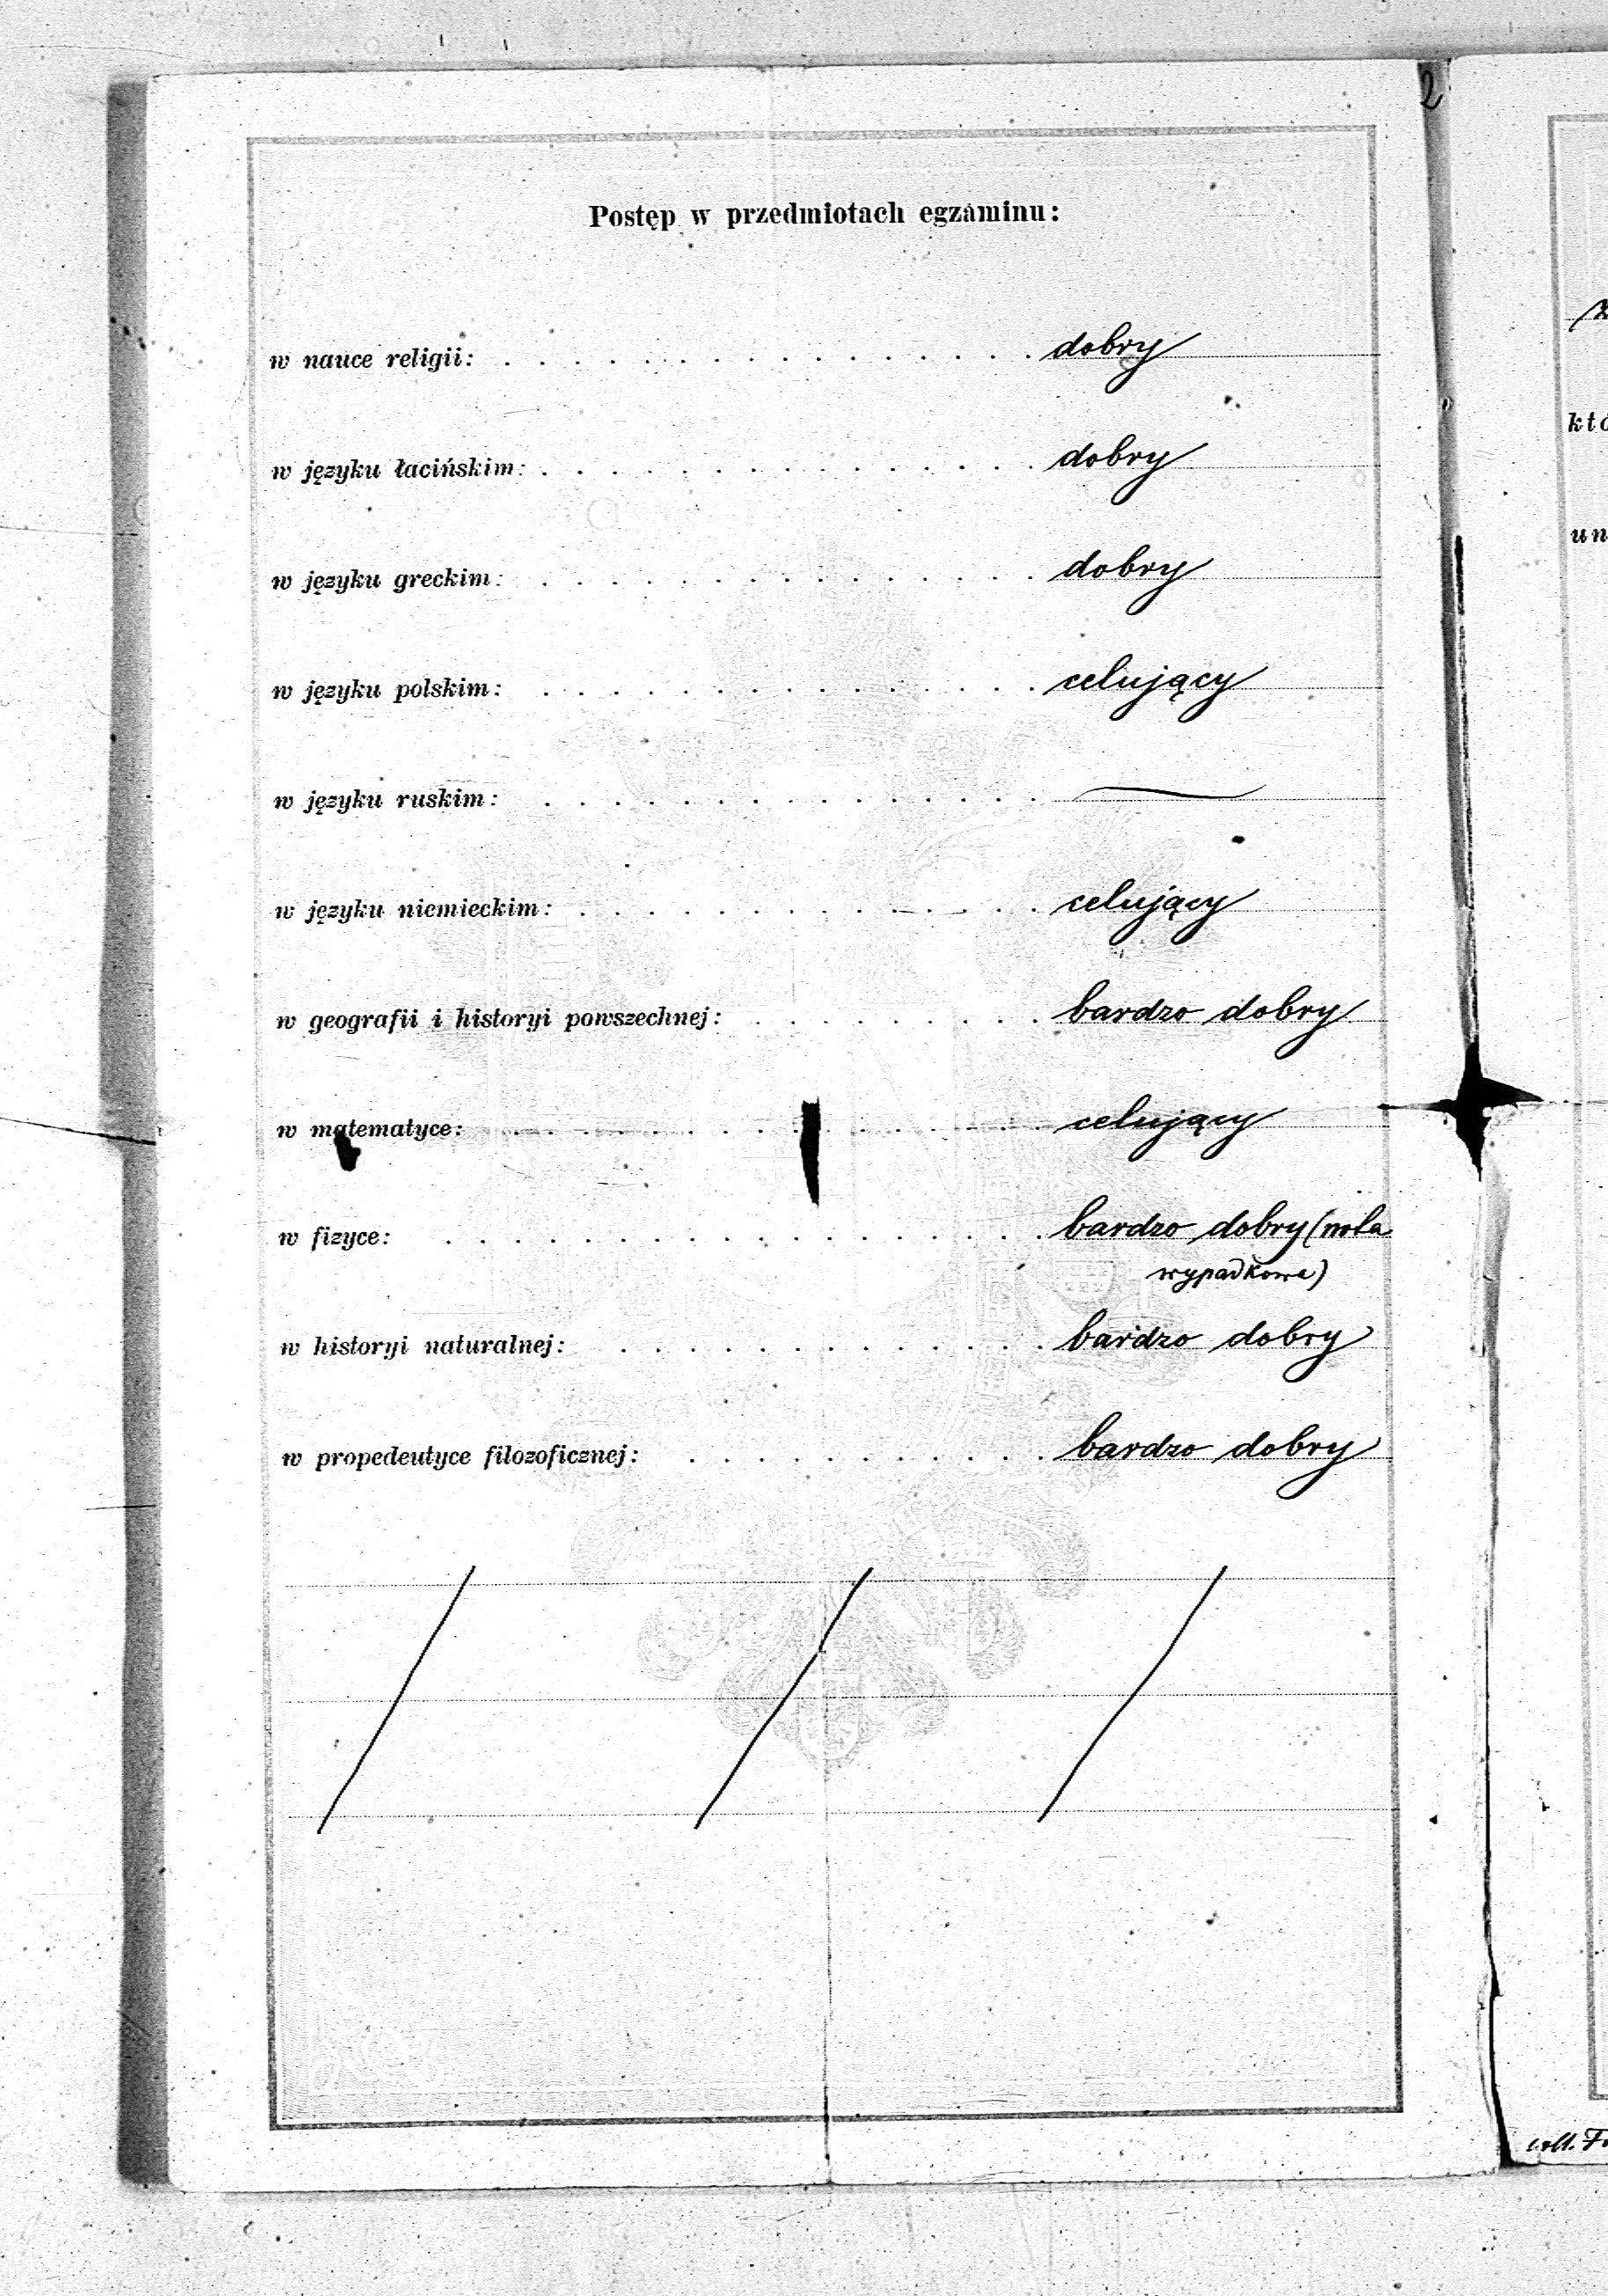 2
Postęp w przedmiotach egzaminu:
w nauce religii: . . . . . . . . . . . . . . . . dobry
w języku łacińskim: . . . . . . . . . . . . . . . dobry
w języku greckim: . . . . . . . . . . . . . . dobry
w języku polskim: . . . . . . . . . . . . . . . celujący
w języku ruskim: . . . . . . . . . . . . . . —
w języku niemieckim: . . . . . . . . . . . . . . celujący
w geografii i historyi powszechnej: . . . . . . . . . bardzo dobry
w matematyce: . . . . . . . . . . . . . . . . celujący
w fizyce: . . . . . . . . . . . . . . . . . . bardzo dobry (nota
wypadkowa)
w historyi naturalnej: . . . . . . . . . . . . . bardzo dobry
w propedeutyce filozoficznej: . . . . . . . . . . . bardzo dobry
któ
un